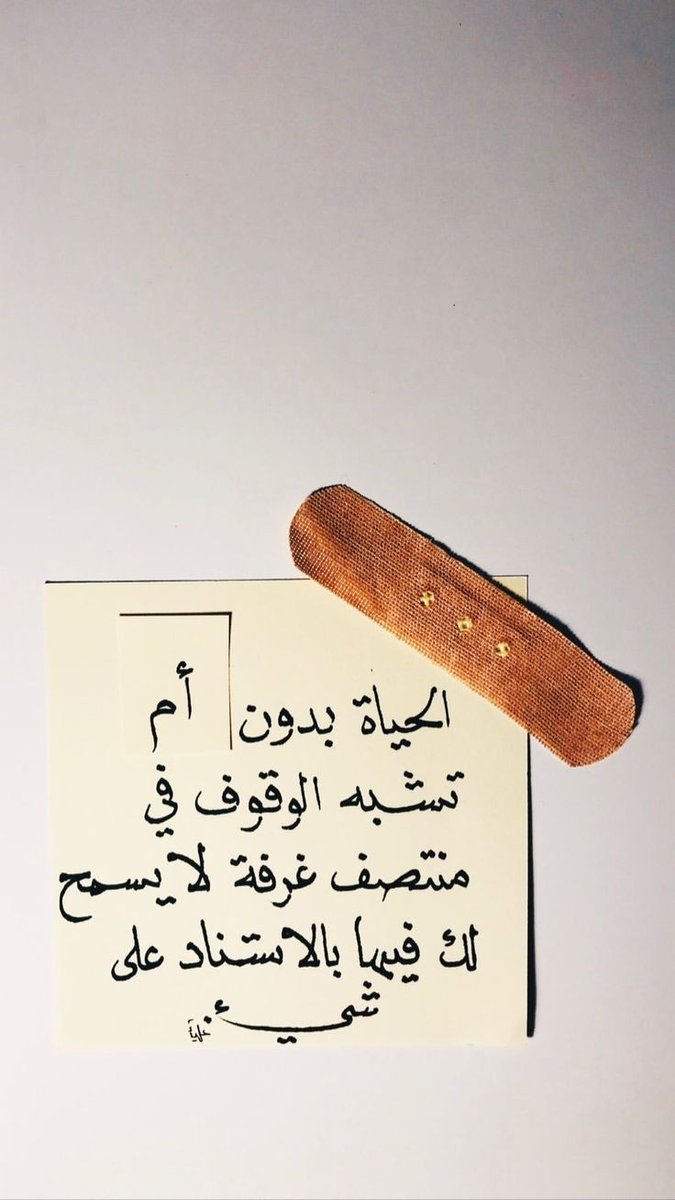 الحياة بدون أم
تشبه الوقوف في
منتصف غرفة لا يسمح
لك فيها بالاستناد على
شيء